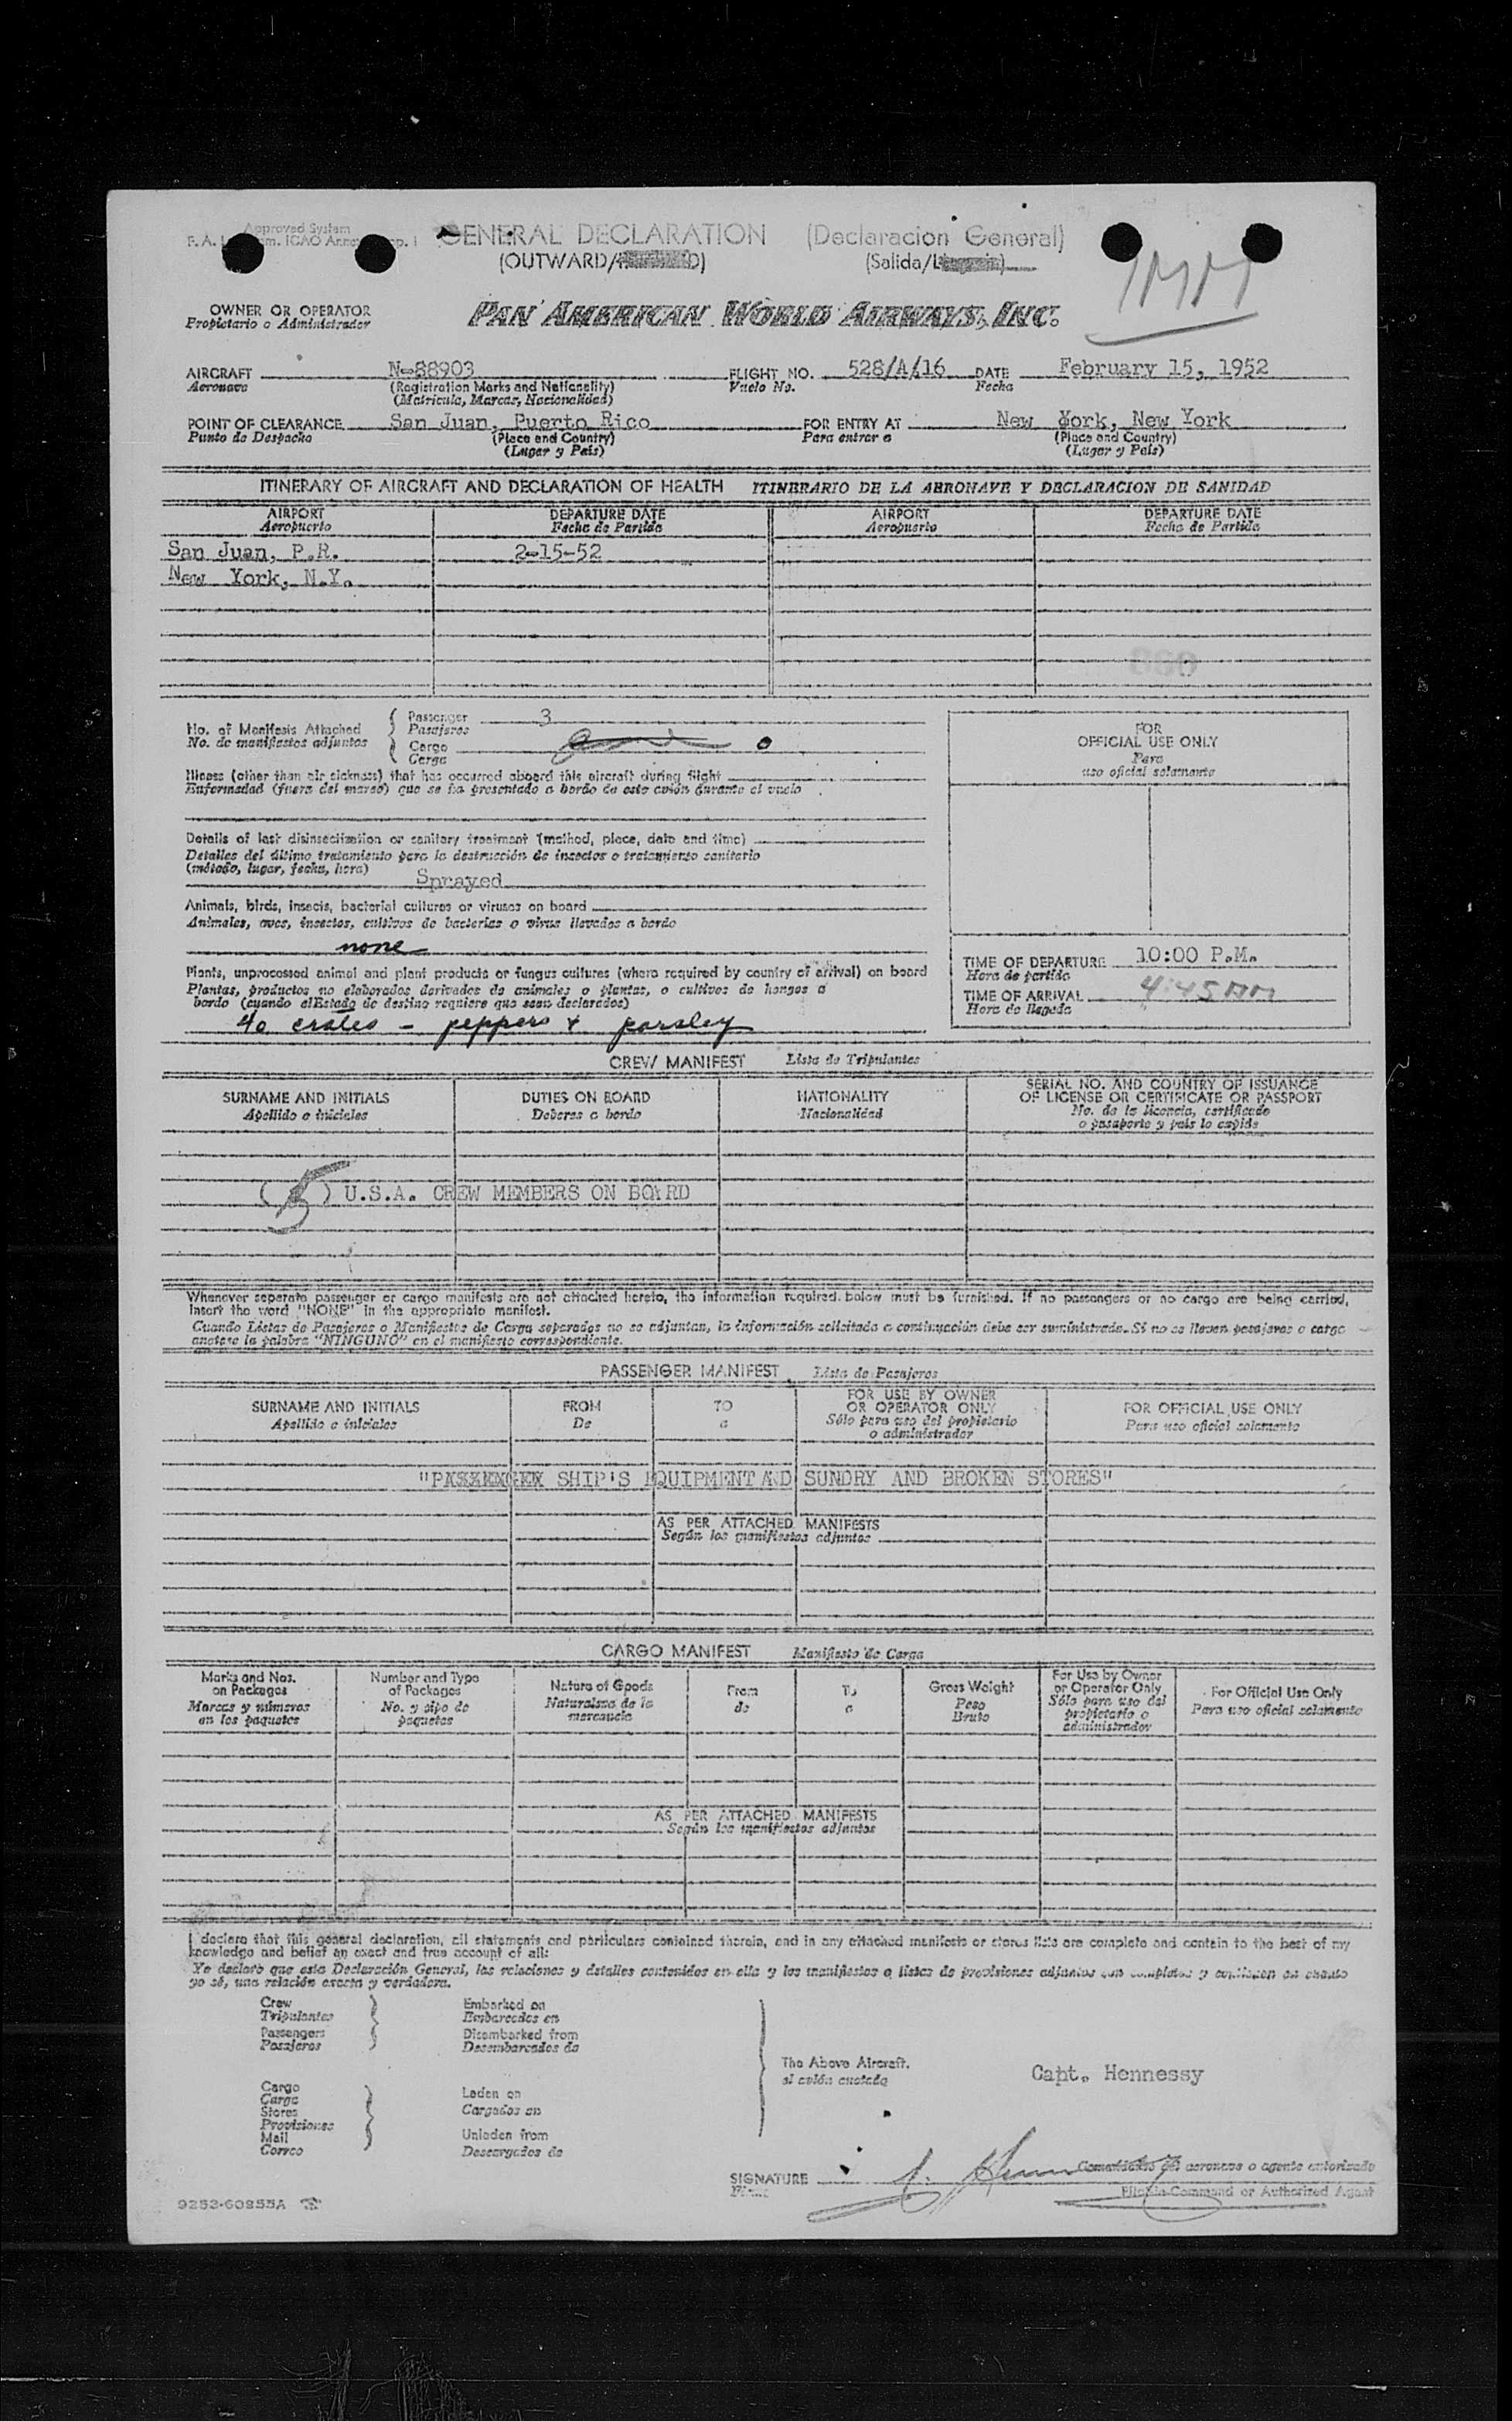 Approved System
GENERAL DECLARATION (Declaracion General)
(OUTWARD/
(Salida/
IMM
OWNER OR OPERATOR
Propietario o Administrador
PAN AMERICAN WORLD AIRWAYS, INC.
AIRCRAFT N-88903 FLIGHT NO. 528/A/16 DATE February 15, 1952
Aeronave (Registration Marks and Nationality) Vuelo No. Fecha
(Matricula, Marcas, Nacionalidad)
POINT OF CLEARANCE San Juan, Puerto Rico FOR ENTRY AT New York, New York
Punto de Despacho (Place and Country) Para entrar a (Place and Country)
(Lugar y Pais) (Lugar y Pais)
ITINERARY OF AIRCRAFT AND DECLARATION OF HEALTH ITINERARIO DE LA AERONAVE Y DECLARACION DE SANIDAD
AIRPORT DEPARTURE DATE AIRPORT DEPARTURE DATE
Aeropuerto Fecha de Partida Aeropuerto Fecha de Partida
San Juan, P.R. 2-15-52
New York, N.Y.
No. of Manifests Attached
No. de manifiestos adjuntos
Passenger 3
Pasajeros
Cargo 0
Carga
FOR
OFFICIAL USE ONLY
Para
uso oficial solamente
Illness (other than air sickness) that has occurred aboard this aircraft during flight
Enfermedad (fuera del mareo) que se ha presentado a bordo de este avión durante el vuelo
Details of last disinsectization or sanitary treatment (method, place, date and time)
Detalles del último tratamiento para la destrucción de insectos o tratamiento sanitario
(método, lugar, fecha, hora) Sprayed
Animals, birds, insects, bacterial cultures or viruses on board
Animales, aves, insectos, cultivos de bacterias o virus llevados a bordo
none
Plants, unprocessed animal and plant products or fungus cultures (where required by country of arrival) on board
Plantas, productos no elaborados derivados de animales o plantas, o cultivos de hongos a
bordo (cuando el Estado de destino requiere que sean declarados)
40 crates - peppers & parsley
TIME OF DEPARTURE 10:00 P.M.
Hora de partida
TIME OF ARRIVAL 4:45 AM
Hora de llegada
CREW MANIFEST Lista de Tripulantes
SURNAME AND INITIALS DUTIES ON BOARD NATIONALITY SERIAL NO. AND COUNTRY OF ISSUANCE
OF LICENSE OR CERTIFICATE OR PASSPORT
Apellido e iniciales Deberes a bordo Nacionalidad No. de la licencia, certificado
o pasaporte y país lo expide
(5) U.S.A. CREW MEMBERS ON BOARD
Whenever separate passenger or cargo manifests are not attached hereto, the information required below must be furnished. If no passengers or no cargo are being carried,
insert the word "NONE" in the appropriate manifest.
Cuando Listas de Pasajeros o Manifiestos de Carga separados no se adjuntan, la información solicitada a continuación debe ser suministrada. Si no se llevan pasajeros o carga
anotese la palabra "NINGUNO" en el manifiesto correspondiente.
PASSENGER MANIFEST Lista de Pasajeros
SURNAME AND INITIALS FROM TO FOR USE BY OWNER
OR OPERATOR ONLY FOR OFFICIAL USE ONLY
Apellido e iniciales De a Sólo para uso del propietario
o administrador Para uso oficial solamente
"PASSENGER SHIP'S EQUIPMENT AND SUNDRY AND BROKEN STORES"
AS PER ATTACHED MANIFESTS
Según los manifiestos adjuntos
CARGO MANIFEST Manifiesto de Carga
Marks and Nos.
on Packages
Marcas y números
en los paquetes
Number and Type
of Packages
No. y tipo de
paquetes
Nature of Goods
Naturaleza de la
mercancia
From
de
To
a
Gross Weight
Peso
Bruto
For Use by Owner
or Operator Only
Sólo para uso del
propietario o
administrador
For Official Use Only
Para uso oficial solamente
AS PER ATTACHED MANIFESTS
Según los manifiestos adjuntos
I declare that this general declaration, all statements and particulars contained therein, and in any attached manifests or stores lists are complete and contain to the best of my
knowledge and belief an exact and true account of all:
Yo declaro que esta Declaración General, las relaciones y detalles contenidos en ella y los manifiestos o listas de provisiones adjuntos son completos y contienen en cuanto
yo sé, una relación exacta y verdadera.
Crew
Tripulantes
Passengers
Pasajeros
Embarked on
Embarcados en
Disembarked from
Desembarcados de
Cargo
Carga
Stores
Provisiones
Mail
Correo
Laden on
Cargados en
Unladen from
Descargados de
The Above Aircraft.
el avión anotado
Capt. Hennessy
SIGNATURE
Firma
Comandante del aeronave o agente autorizado
Pilot in Command or Authorized Agent
9253-60855A